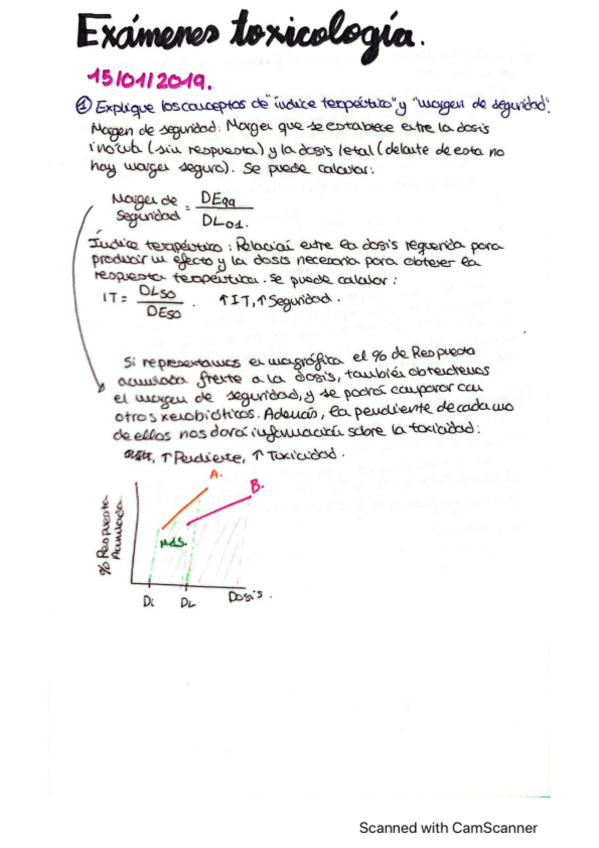 Exámenes toxicología.
15/01/2019.
① Explique los conceptos de "índice terapéutico" y "margen de seguridad".
Margen de seguridad: Margen que se establece entre la dosis
inocua (sin respuesta) y la dosis letal (delante de esta no
hay margen seguro). Se puede calcular:
Margen de Seguridad = DE99 / DL01.
Índice terapéutico: Relación entre la dosis requerida para
producir un efecto y la dosis necesaria para obtener la
respuesta terapéutica. Se puede calcular:
IT = DL50 / DE50. ↑IT, ↑Seguridad.
Si representamos en una gráfica el % de Respuesta
acumulada frente a la dosis, también obtendremos
el margen de seguridad, y se podrá comparar con
otros xenobióticos. Además, la pendiente de cada uno
de ellos nos dará información sobre la toxicidad:
↑ Pendiente, ↑ Toxicidad.
A.
B.
% Respuesta
Acumulada
MdS.
Di DL Dosis.
Scanned with CamScanner